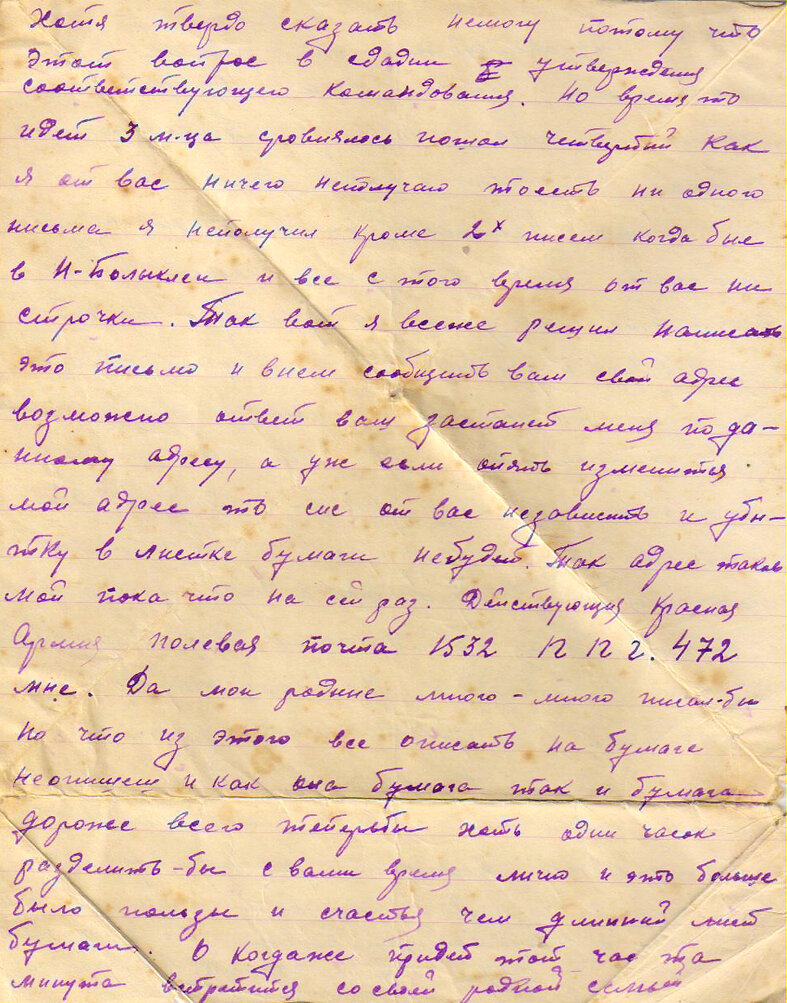 Хотя твердо сказать немогу потому что
этот вопрос в стадии утверждения
соответствующего командования. Но время то
идет 3 м-ца сровнялось пошол четвертый как
я от вас ничего неполучаю тоесть ни одного
письма я неполучил кроме 2х писем когда был
в Н-Балыклеи и все с этого время от вас ни
строчки. Так вот я всеже решил написать
это письмо и внем сообщить вам свой адрес
возможно ответ ваш застанет меня по да-
нному адресу, а уж если опять изменится
мой адрес то от вас независить и убы-
тку в листке бумаги небудет. Так адрес таков
мой пока что на сей раз. Действующия Красная
Армия полевая почта 1532 П П г. 472
мне. Да мои родные много-много писал-бы
но что из этого все описать на бумаге
неопишеш и как она бумага так и бумага
дороже всего теперьбы хоть один часок
разделить-бы с вами время лично и это больше
было пользы и счастья чем длинный лист
бумаги. О когдаже придет тот час та
минута встретится со своей родной семьей